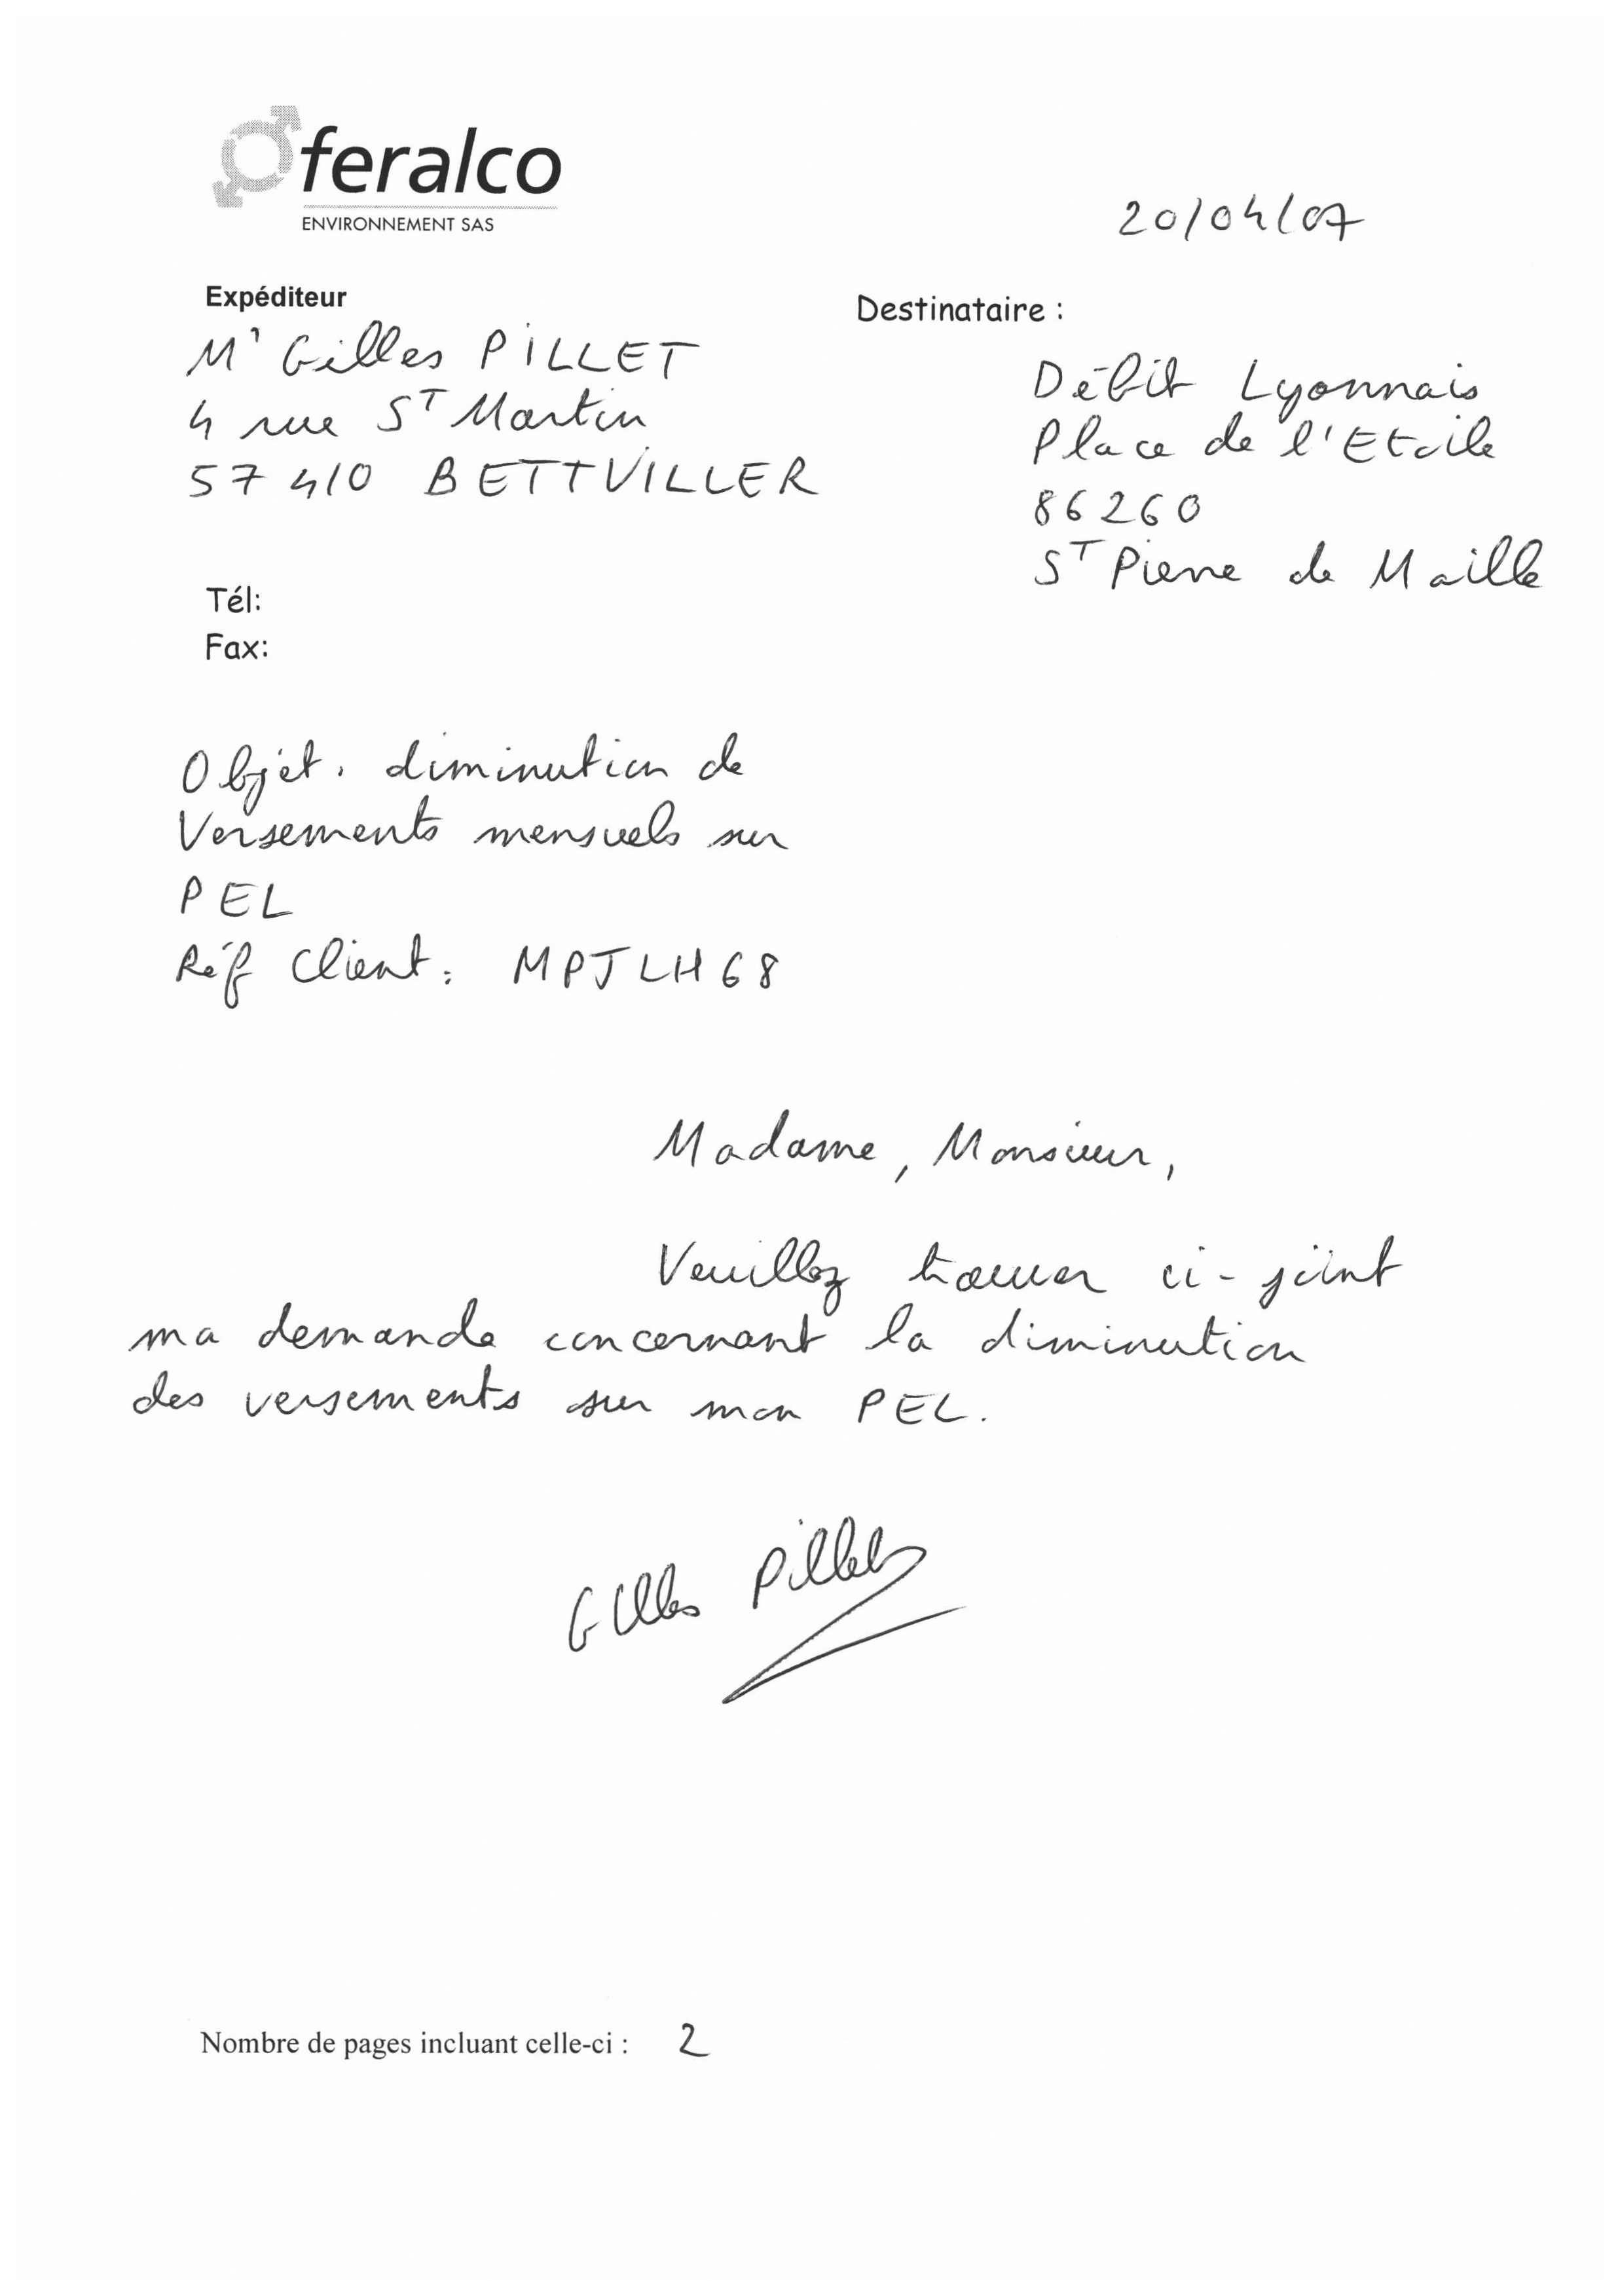 feralco
ENVIRONNEMENT SAS
20/04/07
Expéditeur
Mr Gilles PILLET
4 rue ST Martin
57410 BETTVILLER
Destinataire :
Débit Lyonnais
Place de l'Etoile
86260
ST Pierre de Maille
Tél:
Fax:
Objet : diminution de
Versements mensuels sur
PEL
Réf Client : MPJLH68
Madame, Monsieur,
Veuillez trouver ci-joint
ma demande concernant la diminution
des versements sur mon PEL.
Gilles Pillet
Nombre de pages incluant celle-ci : 2